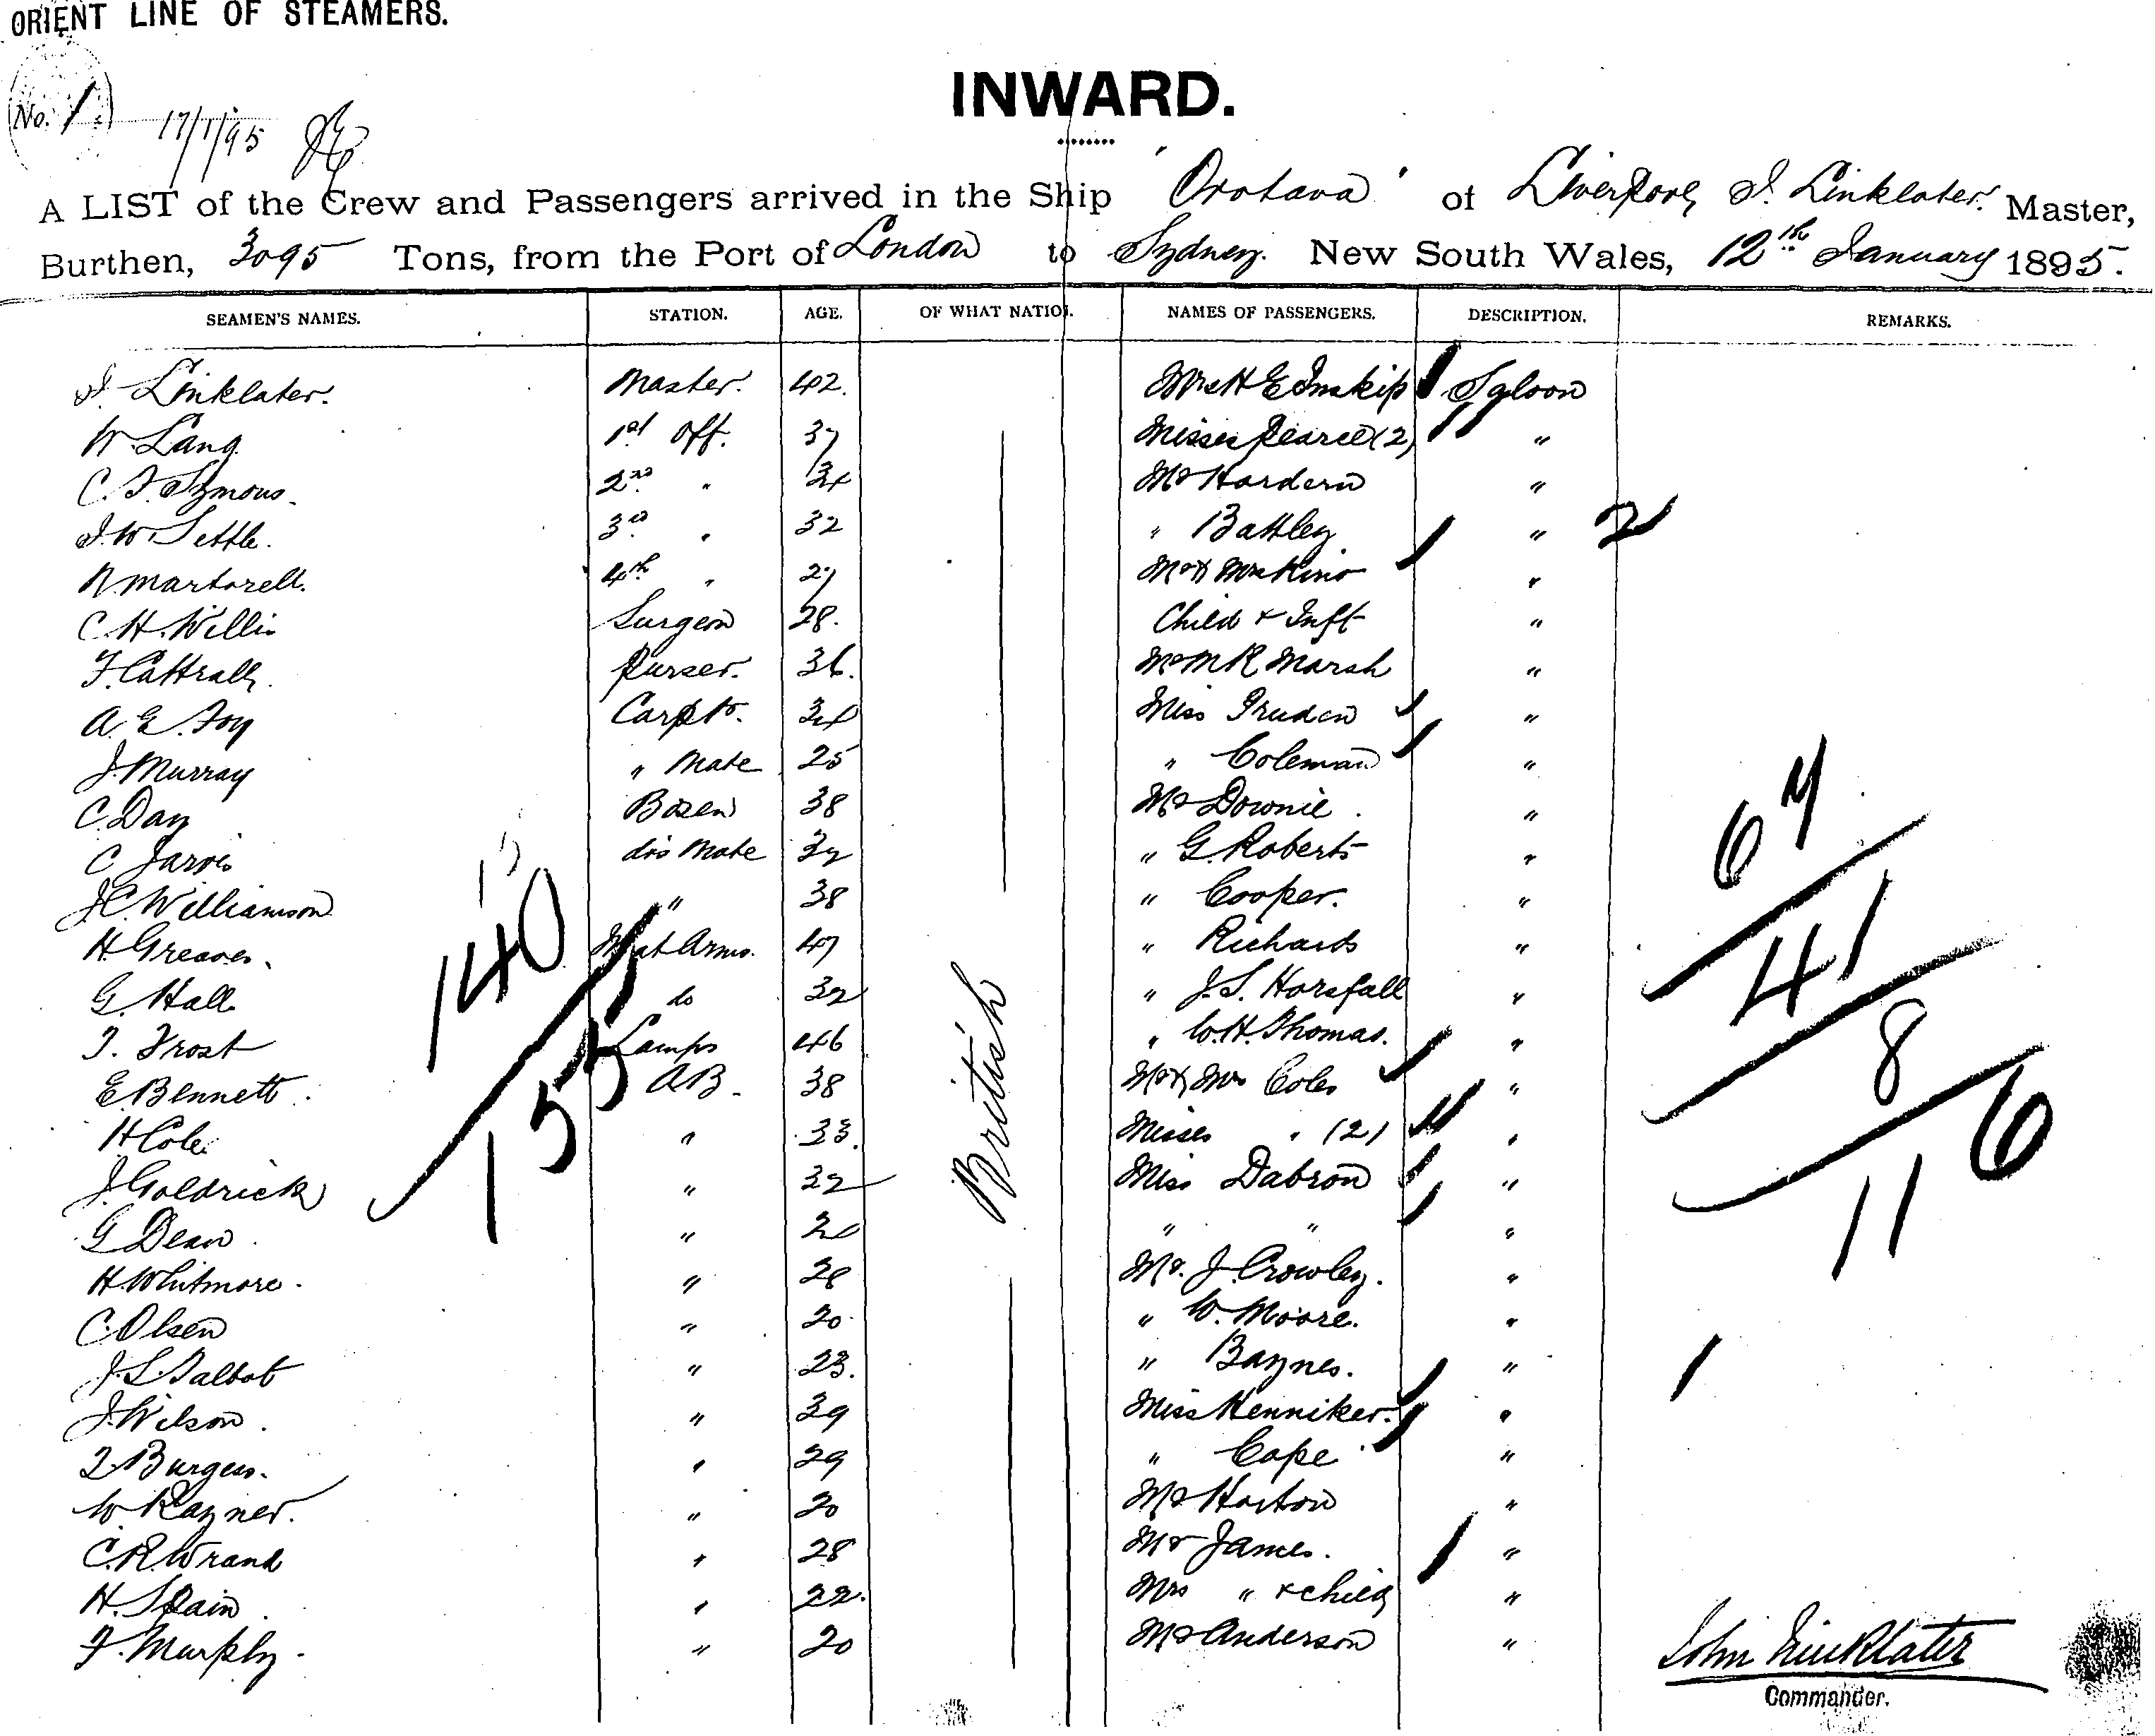 ORIENT LINE OF STEAMERS.
No. 1
17/1/95
INWARD.
A LIST of the Crew and Passengers arrived in the Ship "Orotava" of Liverpool, J. Linklater. Master,
Burthen, 3095 Tons, from the Port of London to Sydney. New South Wales, 12th January 1895.
SEAMEN'S NAMES. STATION. AGE. OF WHAT NATION. NAMES OF PASSENGERS. DESCRIPTION. REMARKS.
J. Linklater. Master. 42. Mrs H E Inskip Saloon
W. Lang 1st Off. 37 Misses Pearce (2) "
C. J. Symons. 2nd " 34 Mr Hordern "
J. W. Settle. 3rd " 32 " Battley " 2
N. Martorell. 4th " 27 Mr & Mrs King "
C. H. Willis Surgeon 28. Child & Inft "
F. Cattrall. Purser. 36. Mr M R Marsh "
A. E. Foy Carptr. 34 Miss Gruden "
J. Murray " Mate 25 " Coleman "
C. Day Bosen 38 Mr Downie "
C Jarvis do's Mate 32 " G. Roberts "
J C Williamson " 38 " Cooper. "
H Greaves. M at Arms. 47 " Richards "
G. Hall do 32 " J. S. Horsfall "
T. Frost Lamps 46 " W. H. Thomas. "
E. Bennett A B. 38 Mr & Mrs Coles "
H Cole " 33. Misses " (2) "
J. Goldrick " 32 Miss Dabron "
G Dean " " " "
H. Whitmore. " 28 Mr. J. Crowley. "
C. Olsen " 20 " W. Moore. "
J. S. Talbot " 23. " Baynes. "
J. Wilson. " 39 British Miss Henniker. "
T. Burgess. " 29 " Cope "
W Rayner. " 20 Mr Horton "
C. R. Wrank " 28 Mr James. "
H. Spain " 22. Mrs " & child "
F. Murphy " 20 Mr Anderson "
140
155
64
41
8
11 6
1
John Linklater
Commander.